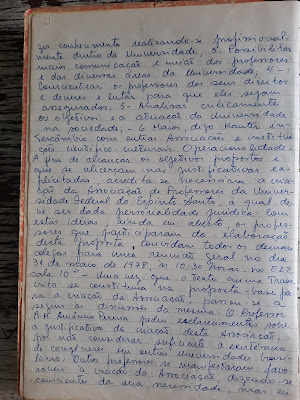 zir conhecimento realizando-se profissional-
mente dentro da Universidade, 3. Possibilitar
maior comunicação e união dos professores
e das diversas áreas da Universidade, 4 -
Conscientizar os professores dos seus direitos
e deveres e lutar para que eles sejam
assegurados; 5 - Analisar criticamente
os objetivos e a atuação da Universidade
na sociedade, - 6 Man, digo Manter in-
tercâmbio com outras Associações e institui-
ções científico-culturais. Operacionalidade -
A fim de alcançar os objetivos propostos e
que se alicerçam nas justificativas ex-
plicitadas, acredita-se necessária a cria-
ção da Associação de Professores da Univer-
sidade Federal do Espírito Santo, à qual de-
ve ser dada personalidade jurídica. Com
estas ideias, ainda em aberto, os profes-
sores que participaram da elaboração
desta proposta, convidam todos os demais
colegas para uma reunião geral no dia
31 de maio de 1978, às 10,30 horas no ED2,
sala 10" - Uma vez que o texto acima trans-
crito se constituía na proposta-base pa-
ra a criação da Associação, passou-se a
seguir à discussão da mesma. O Professor
pediu esclarecimentos sobre
a justificativa da criação desta Associação,
por não considerar suficiente a existência
de congêneres em outras Universidades brasi-
leiras. Outros professores se manifestaram favo-
ráveis à criação da Associação, dizendo-se
conscientes da sua necessidade,